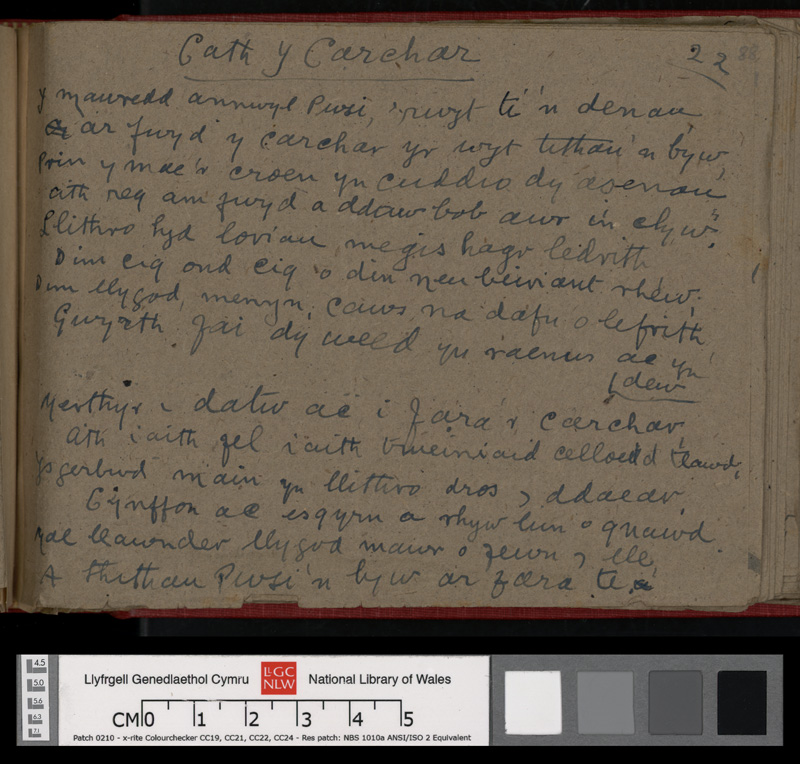 Cath y Carchar
22
88
Y mawredd annwyl Pwsi, 'rwyt ti 'n denau,
ar fwyd y carchar yr wyt tithau 'n byw,
Prin y mae'r croen yn cuddio dy asenau
ath reg am fwyd a ddaw bob awr i'n clyw".
Llithro hyd loriau megis hagr ledrith
Dim cig ond cig o din neu beiriant rhew,
Dim llygod, menyn, caws na dafn o lefrith
Gwyrth fai dy weld yn raenus ac yn
dew
Merthyr i datw ac i fara'r carchar,
Ath iaith fel iaith trueiniaid celloedd tlawd,
Ysgerbwd main yn llithro dros y ddaear,
Cynffon ac esgyrn a rhyw lun o gnawd
Mae llawnder llygod mawr o fewn y lle,
A thithau Pwsi'n byw ar fara te.
4.5
5.0
5.6
6.3
7.1
Llyfrgell Genedlaethol Cymru LlGC NLW National Library of Wales
CM 0 1 2 3 4 5
Patch 0210 - x-rite Colourchecker CC19, CC21, CC22, CC24 - Res patch: NBS 1010a ANSI/ISO 2 Equivalent